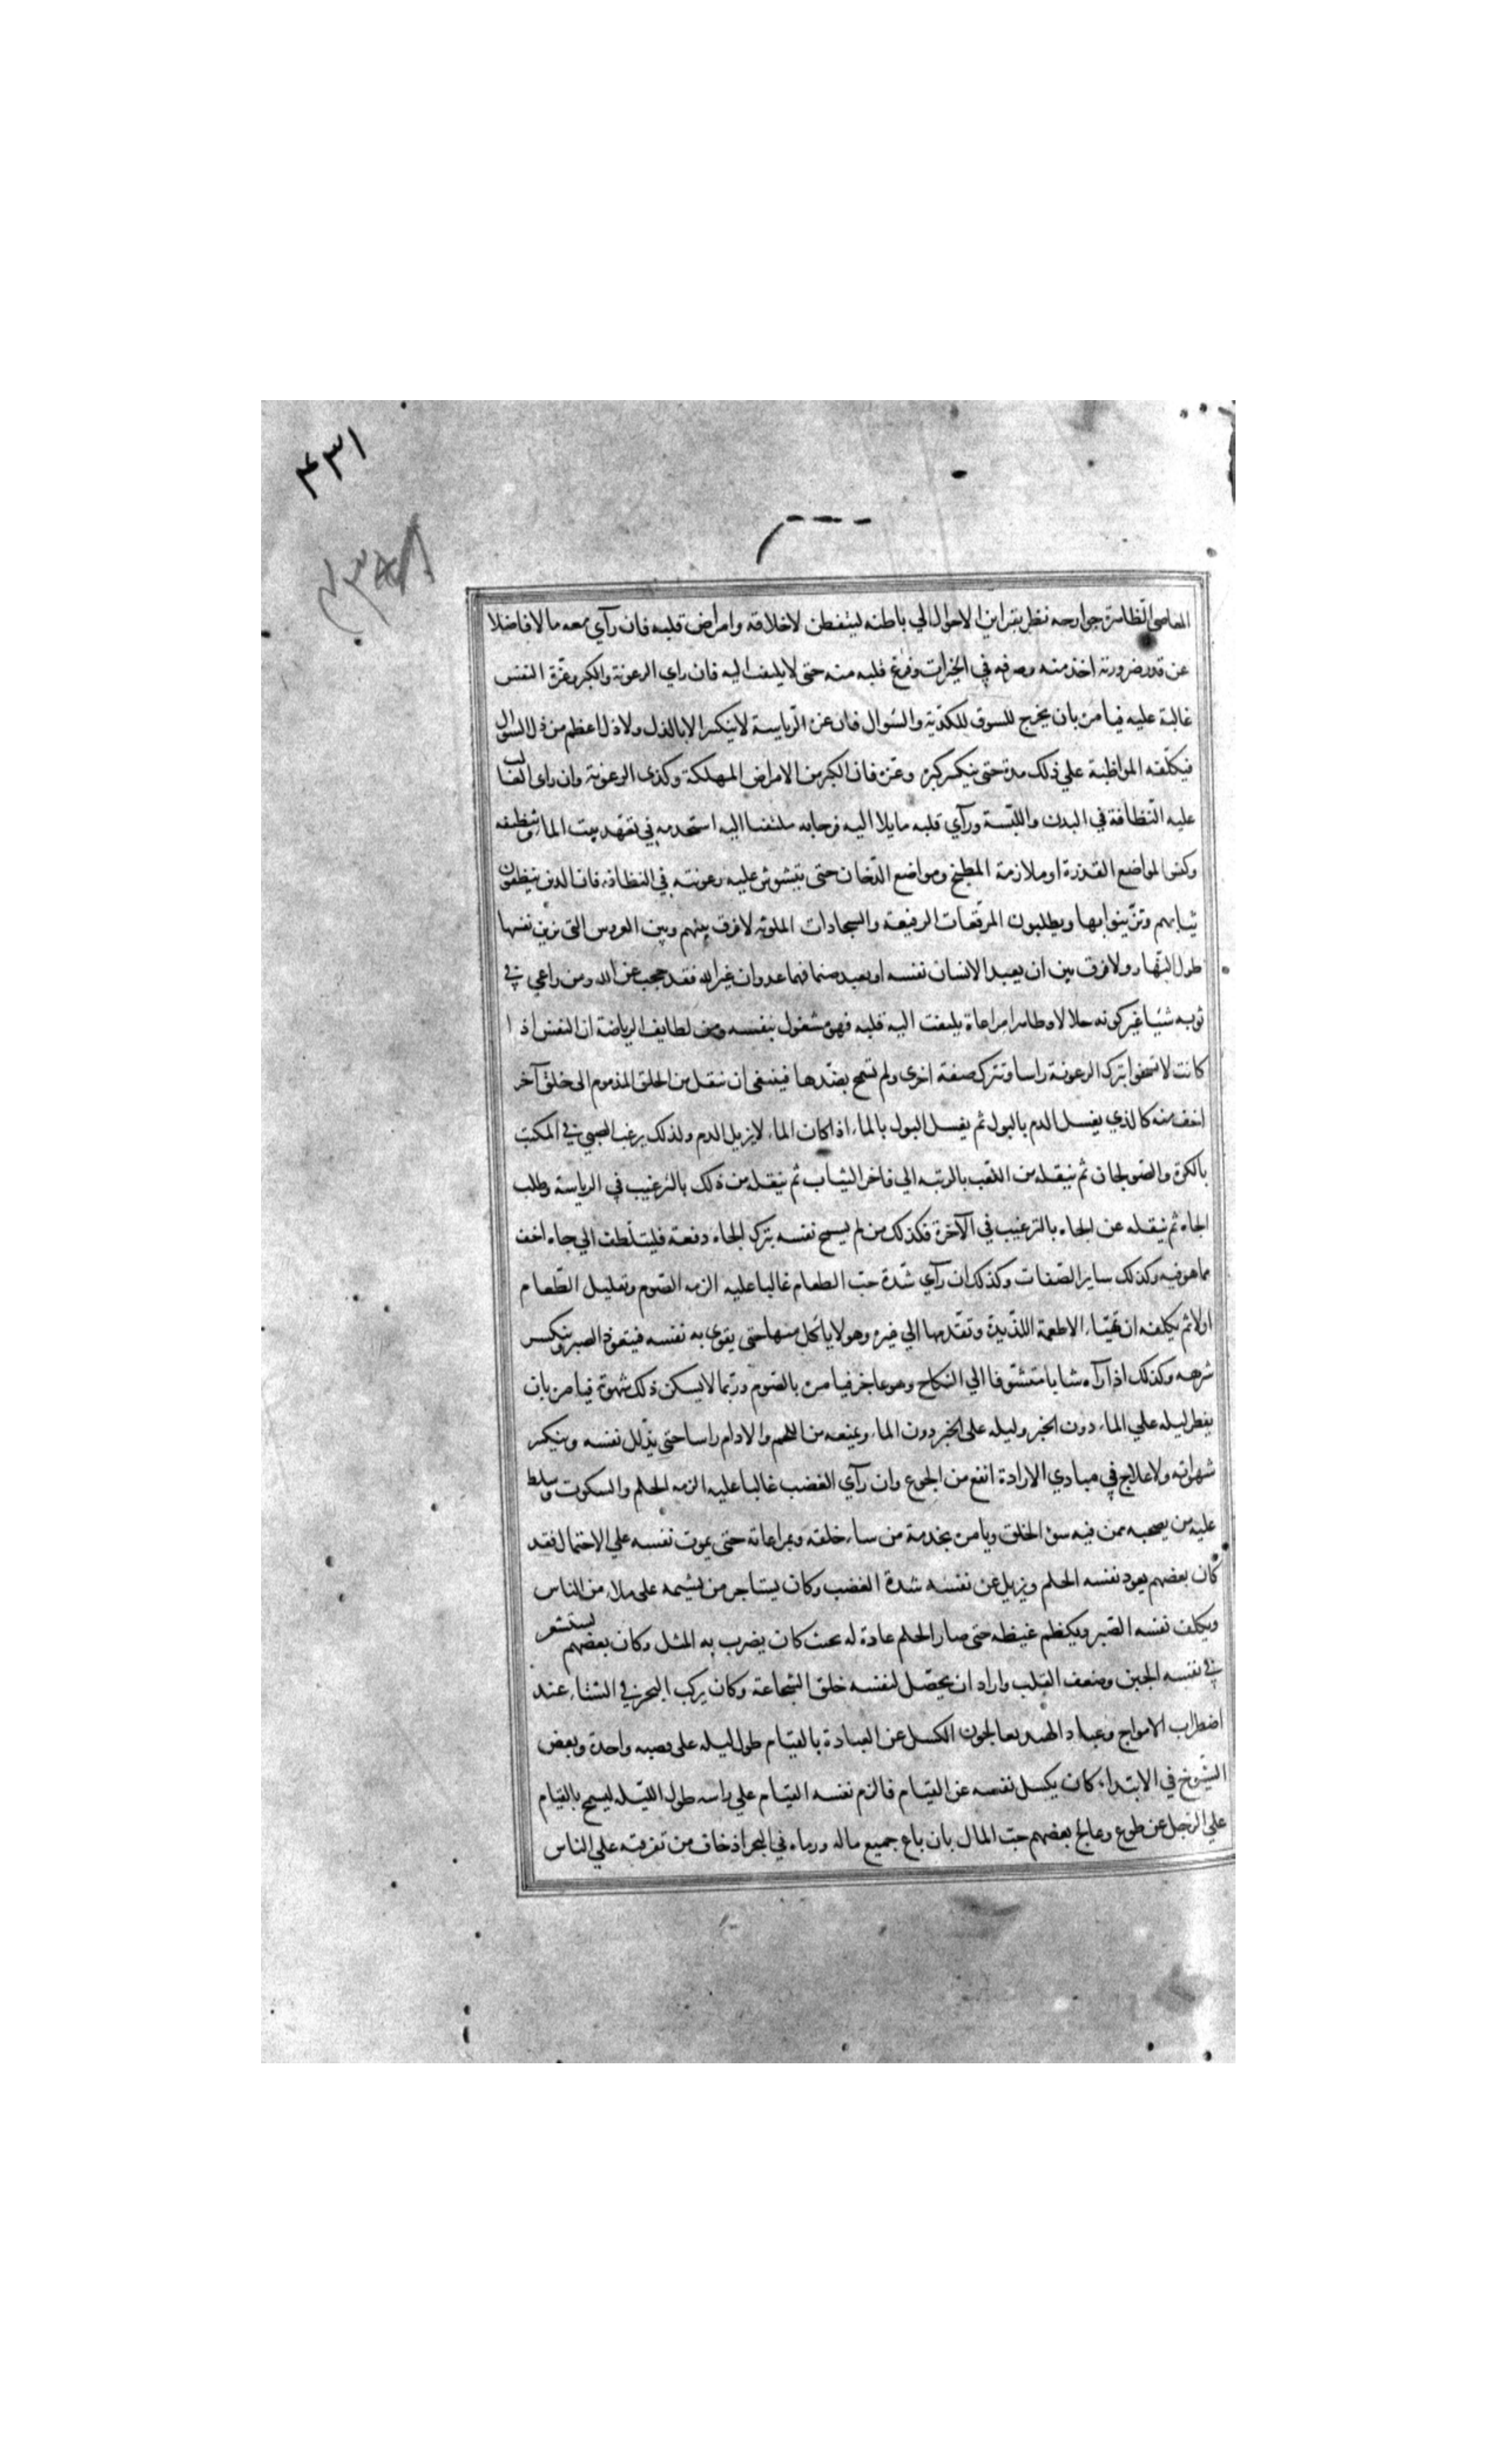 ۴۳۱
المعاصي الظاهرة جوارحه نظر بقراين الاحوال الي باطنه ليتفطن لاخلاقه وامراض قلبه فان رآي معه مالا فاضلا
عن قدر ضرورته اخذ منه وصرفه في الخيرات وفرغ قلبه منه حتى لا يلتفت اليه فان راي الرعونة والكبر وعزة النفس
غالبة عليه فيامره بان يخرج للسوق للكدية والسّوال فان عزة الرّياسة لا ينكسر الا بالذل ولا ذل اعظم من ذل السوال
فيكلّفه المواظبة علي ذلك مدة حتى ينكسر كبره وعزه فان الكبر من الامراض المهلكة وكذى الرعونة وان راى الغالب
عليه النّظافة في البدن واللبسة ورآي قلبه مايلا اليه فرحا به ملتفتا اليه استخدمه في تعهد بيت الماء وتنظيفه
وكنس المواضع القذرة او ملازمة المطبخ ومواضع الدّخان حتى يتشوش عليه رعونته في النظافة فان الذين ينظفون
ثيابهم وتزّينوا بها ويطلبون المرقّعات الرفيعة والسجادات الملونة لا فرق بينهم وبين العروس التى تزين نفسها
طول النّهار ولا فرق بين ان يعبد الانسان نفسه او يعبد صنما فمهما عدوان غير الله فقد حجب عن الله ومن راعي في
ثوبه شيئا غير كونه حلالا وطاهرا مراعاة يلتفت اليه قلبه فهو مشغول بنفسه ومن لطايف الرياضة ان النفس اذا
كانت لا تسخوا بترك الرعونة راسا وتترك صفة اخرى ولم تسمح بضدها فينبغى ان تنقل من الخلق المذموم الى خلق آخر
اخف منه كالذي يغسل الدم بالبول ثم يغسل البول بالماء اذا كان الماء لا يزيل الدم ولذلك يرغب الصبي في المكتب
بالكرة والصولجان ثم ينقله من اللعب بالرتبه الي فاخر الثياب ثم ينقله من ذلك بالترغيب في الرياسة وطلب
الجاه ثم ينقله عن الجاه بالترغيب في الآخرة فكذلك من لم يسمح نفسه بترك الجاه دفعة فليتلطف الي جاه اخف
مما هو فيه وكذلك ساير الصّفات وكذلك ان رآي شّدة حبّ الطعام غالبا عليه الزمه الصّوم وتقليل الطّعام
اولا ثم يكلفه ان تهّيّا الاطعمة اللذيذة وتقدمها الي غيره وهو لا ياكل منها حتى يقوى به نفسه فيتعوذ الصبر وينكسر
شرهه وكذلك اذا رآه شابا متشوقا الي النكاح وهو عاجز فيامره بالصّوم وربّما لا يسكن ذلك شهوته فيامره بان
يفطر ليله علي الماء دون الخبز وليله على الخبز دون الماء ويمنعه من اللحم والادام راسا حتى يذّلل نفسه وينكسر
شهواته ولا علاج في مبادي الارادة انفع من الجوع وان رآي الغضب غالبا عليه الزمه الحلم والسكوت وسلط
عليه من يصحبه ممن فيه سوء الخلق ويامره بخدمة من ساء خلقه وبمراعاته حتى يموت نفسه علي الاحتمال فقد
كان بعضهم يعود نفسه الحلم ويزيل عن نفسه شدة الغضب وكان يستاجر من يشتمه على ملاء من الناس
ويكلف نفسه الصبر ويكظم غيظه حتى صار الحلم عادة له بحيث كان يضرب به المثل وكان بعضهم يستشعر
في نفسه الجبن وضعف القلب واراد ان يحصّل لنفسه خلق الشجاعة وكان يركب البحر في الشتاء عند
اضطراب الامواج وعباد الهند يعالجون الكسل عن العبادة بالقيام طول ليله على نصبه واحدة وبعض
الشيوخ في الابتداء كان يكسل نفسه عن القيام فالزم نفسه القيام علي راسه طول الليله ليسمح بالقيام
علي الرّجل عن طوع وعالج بعضهم حبّ المال بان باع جميع ماله ورماه في البحر اذ خاف من تفرقته علي الناس